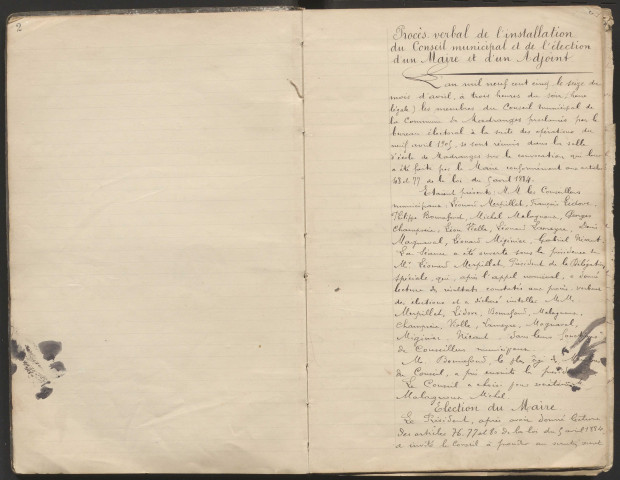 2
Procès verbal de l'installation
du Conseil municipal et de l'élection
d'un Maire et d'un Adjoint
L'an mil neuf cent cinq le seize du
mois d'avril, à trois heures du soir (heure
légale) les membres du Conseil municipal de
la Commune de Madranges proclamés par le
bureau électoral à la suite des opérations du
neuf avril 1905, se sont réunis dans la salle
d'école de Madranges sur la convocation qui leur
a été faite par le Maire conformément aux articles
48 et 77 de la loi du 5 avril 1884.
Étaient présents: M.M. les Conseillers
municipaux: Léonard Merpillat, François
Bonnefond, Michel Malagnoux,
Champseix, Léon Nolle, Léonard
Magnaval, Léonard Miginiac, Gabriel Nicaud.
La séance a été ouverte sous la présidence de
Mr Léonard Merpillat, Président de la Délégation
spéciale, qui, après l'appel nominal, a donné
lecture des résultats constatés aux procès-verbaux
des élections et a déclaré installer M.M.
Merpillat, Bonnefond, Malagnoux,
Champseix, Nolle, Magnaval,
Miginiac, Nicaud, dans leurs fonctions
de Conseillers municipaux.
M. Bonnefond, le plus âgé des
du Conseil, a pris ensuite la
Le Conseil a choisi pour secrétaire
Malagnoux Michel
Élection du Maire
Le Président, après avoir donné lecture
des articles 76, 77 et 80 de la loi du 5 avril 1884
a invité le Conseil à procéder au scrutin secret